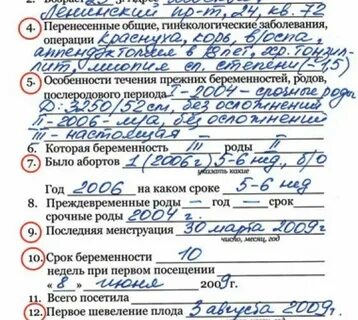 Ленинский пр-т, 21, кв. 72
4. Перенесенные общие, гинекологические заболевания,
операции Краснуха, корь, в/оспа,
аппендэктомия в 8 лет, хр. тонзил-
лит, миопия сл. степени (-1,5)
5. Особенности течения прежних беременностей, родов,
послеродового периода I-2004 - срочные роды
3250/52 см, без осложнений
II-2006 - м/а, без осложнений
III - настоящая
6. Которая беременность III роды II
7. Было абортов 1 (2006 г) 5-6 нед, б/о
указать какие
Год 2006 на каком сроке 5-6 нед
8. Преждевременные роды - год - срок -
срочные роды 2004 г.
9. Последняя менструация 30 марта 2009 г
число, месяц, год
10. Срок беременности 10
недель при первом посещении
« 8 » июня 2009 г.
11. Всего посетила
12. Первое шевеление плода 3 августа 2009 г.